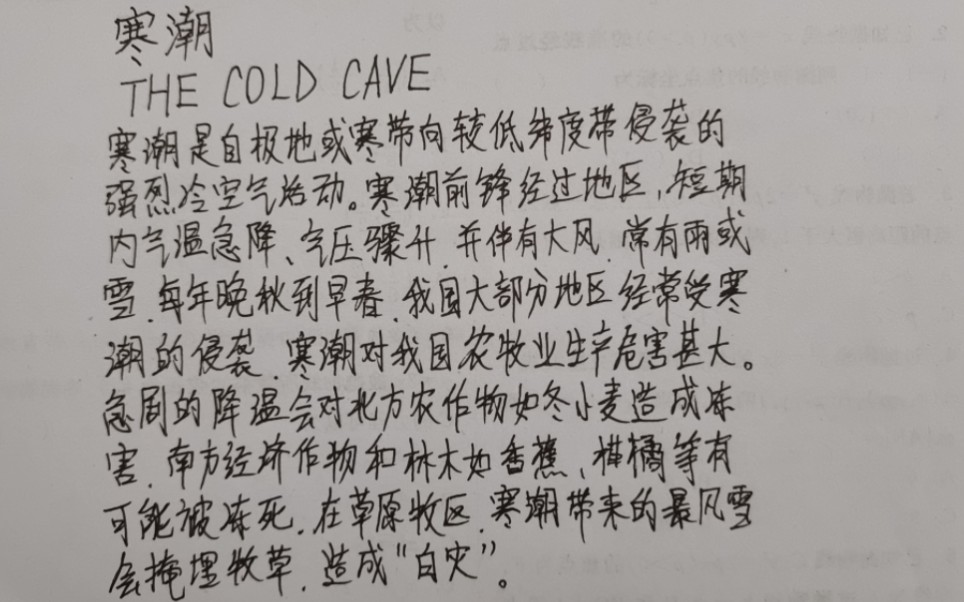 寒潮
THE COLD CAVE
寒潮是自极地或寒带向较低纬度带侵袭的
强烈冷空气活动。寒潮前锋经过地区,短期
内气温急降、气压骤升 并伴有大风,常有雨或
雪.每年晚秋到早春,我国大部分地区经常受寒
潮的侵袭.寒潮对我国农牧业生产危害甚大。
急剧的降温会对北方农作物如冬小麦造成冻
害.南方经济作物和林木如香蕉、柑橘等有
可能被冻死.在草原牧区,寒潮带来的暴风雪
会掩埋牧草,造成“白灾”。